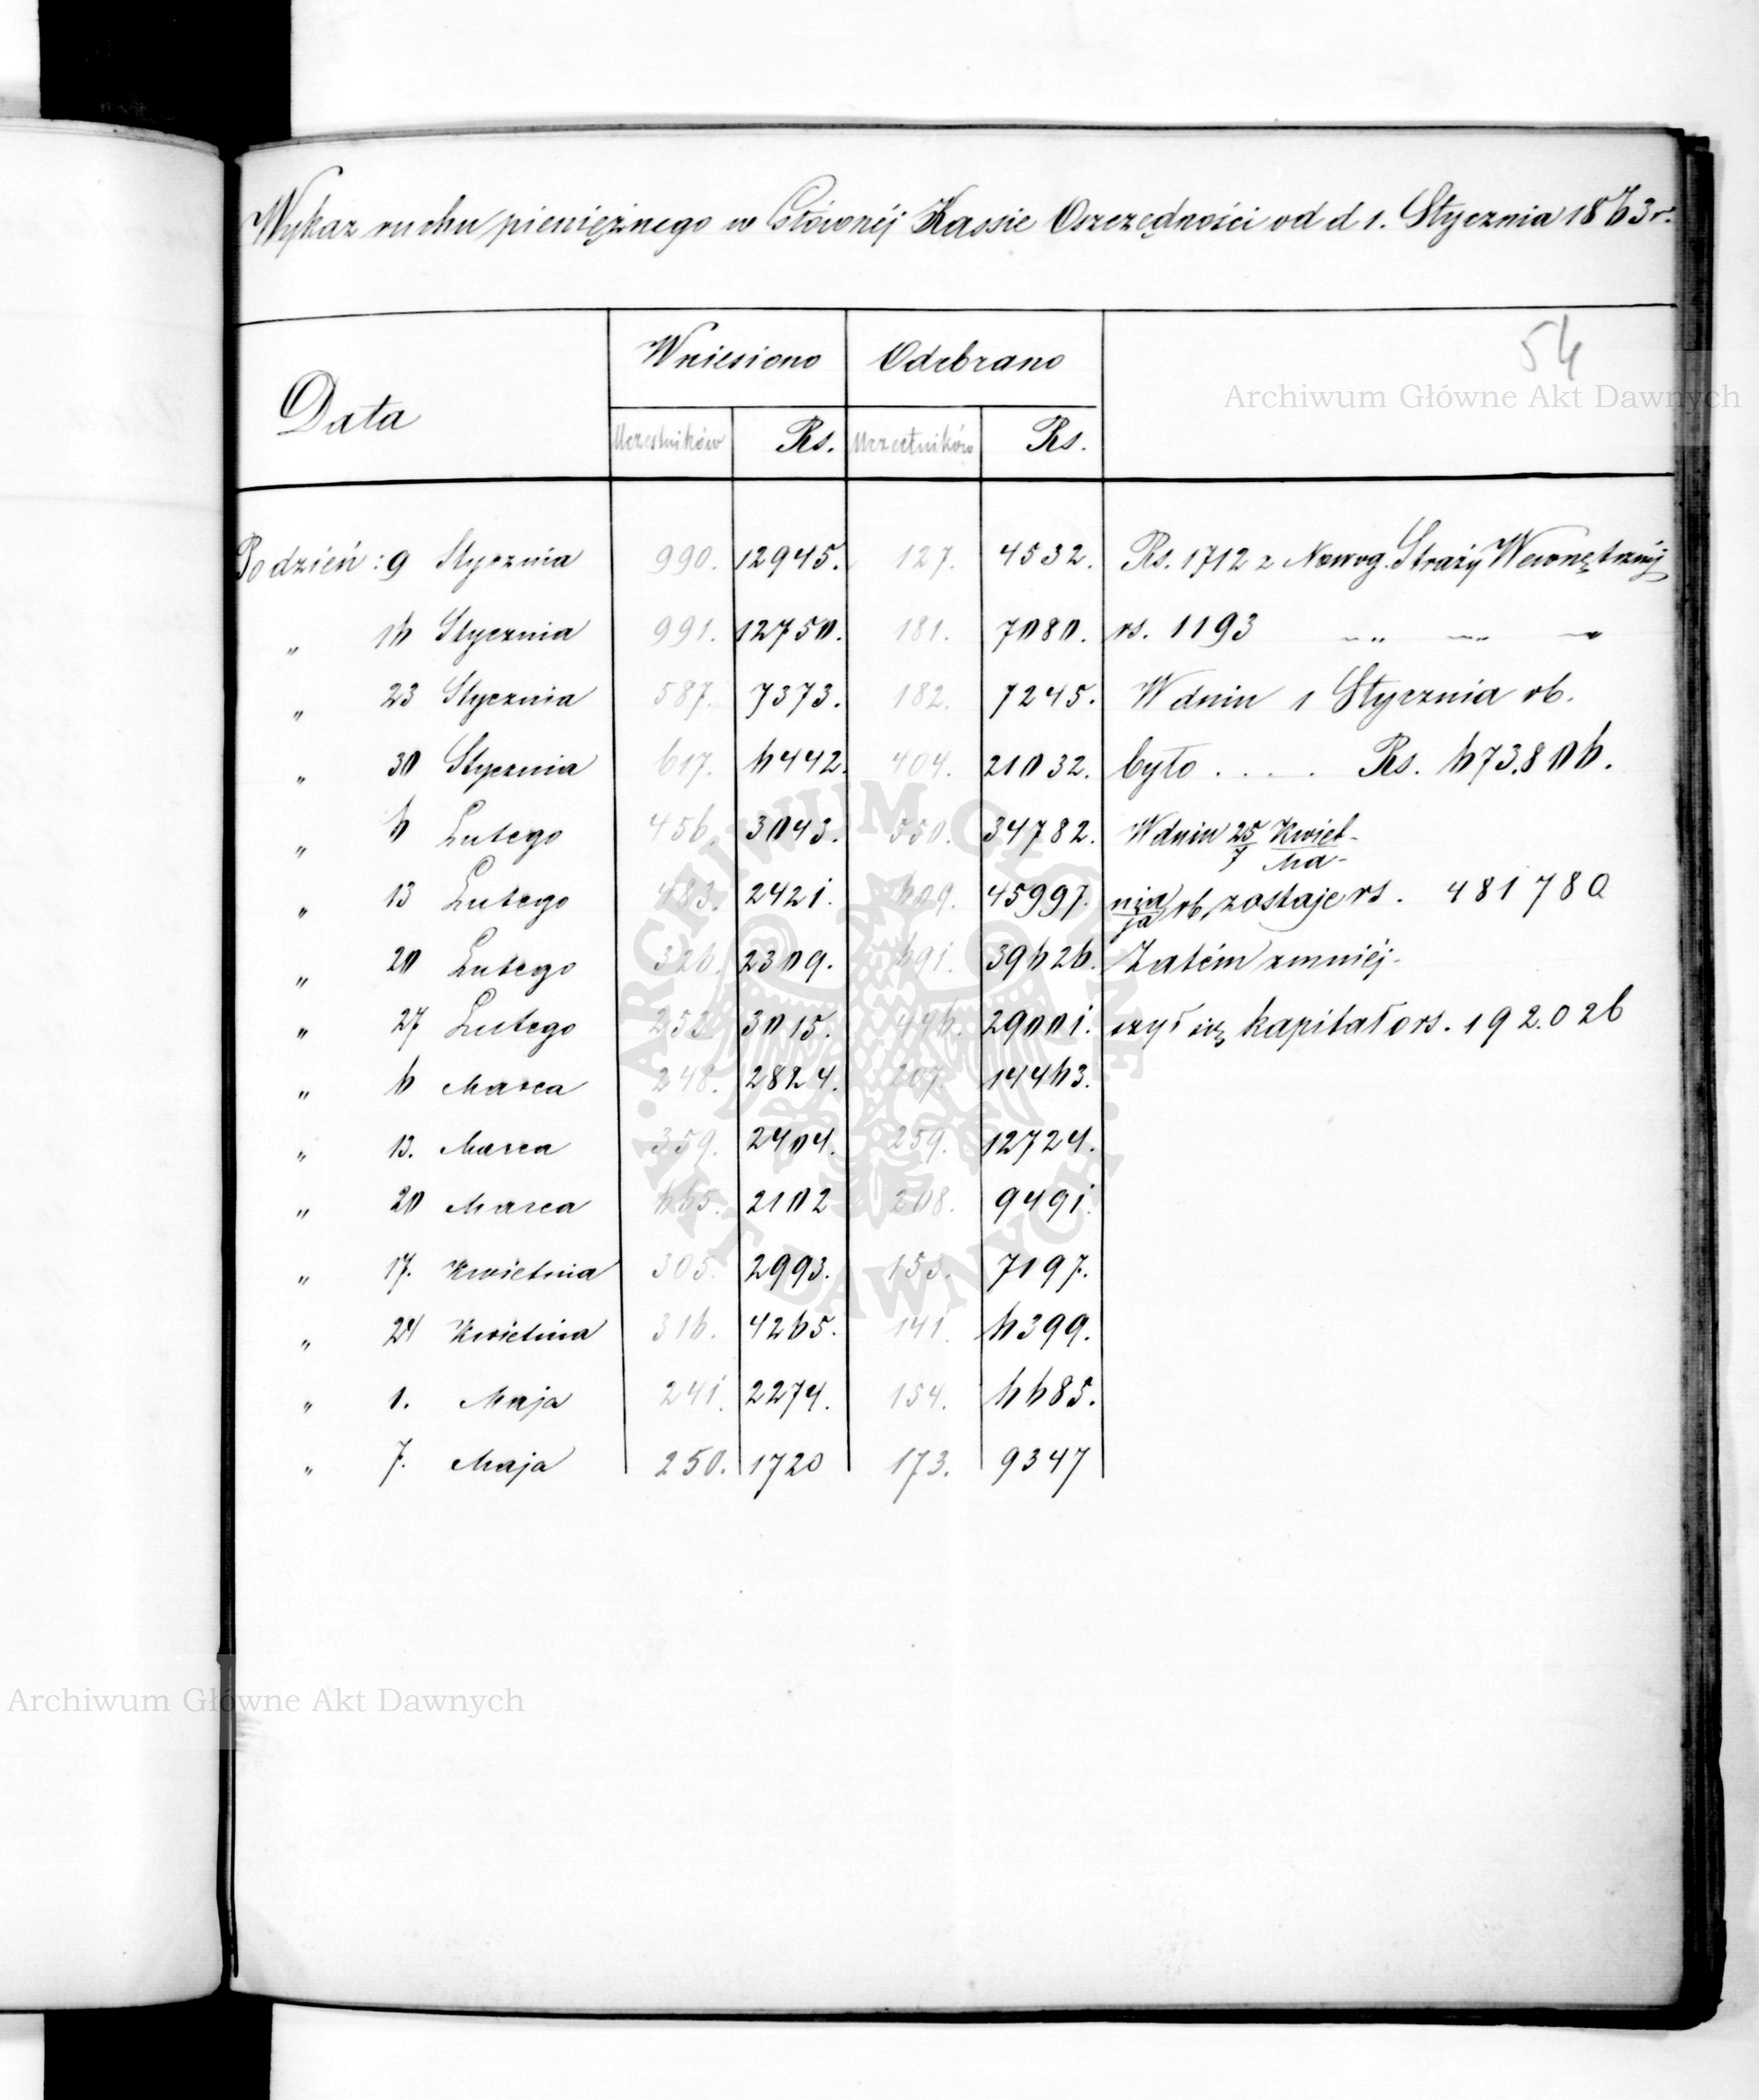 Wykaz ruchu pieniężnego w Głównéj Kassie Oszczędności od d 1. Stycznia 1863 r.
54
Archiwum Główne Akt Dawnych
Data Wniesiono Odebrano
Uczestników Rs. Uczestników Rs.
Po dzień: 9 Stycznia 990. 12945. 127. 4532. Rs. 1712 z Nowog. Straży Wewnętrznéj
„ 16 Stycznia 991. 12750. 181. 7080. rs. 1193 „ „ „
„ 23 Stycznia 587. 7373. 182. 7245. W dniu 1 Stycznia rb.
„ 30 Stycznia 617. 6442. 404. 21032. było . . . . Rs. 673.806.
„ 6 Lutego 456. 3043. 550. 34782. W dniu 25/7 Kwiet-/Ma-
„ 13 Lutego 483. 2421. 609. 45997. nia/ja rb. zostaje rs. 481780
„ 20 Lutego 326. 2309. 691. 39626. Zatém zmniéj-
„ 27 Lutego 253. 3015. 446. 29001. szył się kapitał o rs. 192.026
„ 6 Marca 248. 2824. 207. 14463.
„ 13. Marca 359. 2404. 259. 12724.
„ 20 Marca 665. 2102 208. 9491.
„ 17. Kwietnia 305. 2993. 153. 7197.
„ 24 Kwietnia 316. 4265. 141. 6399.
„ 1. Maja 241. 2274. 154. 6685.
„ 7. Maja 250. 1720 173. 9347
ARCHIWUM GŁÓWNE AKT DAWNYCH
Archiwum Główne Akt Dawnych